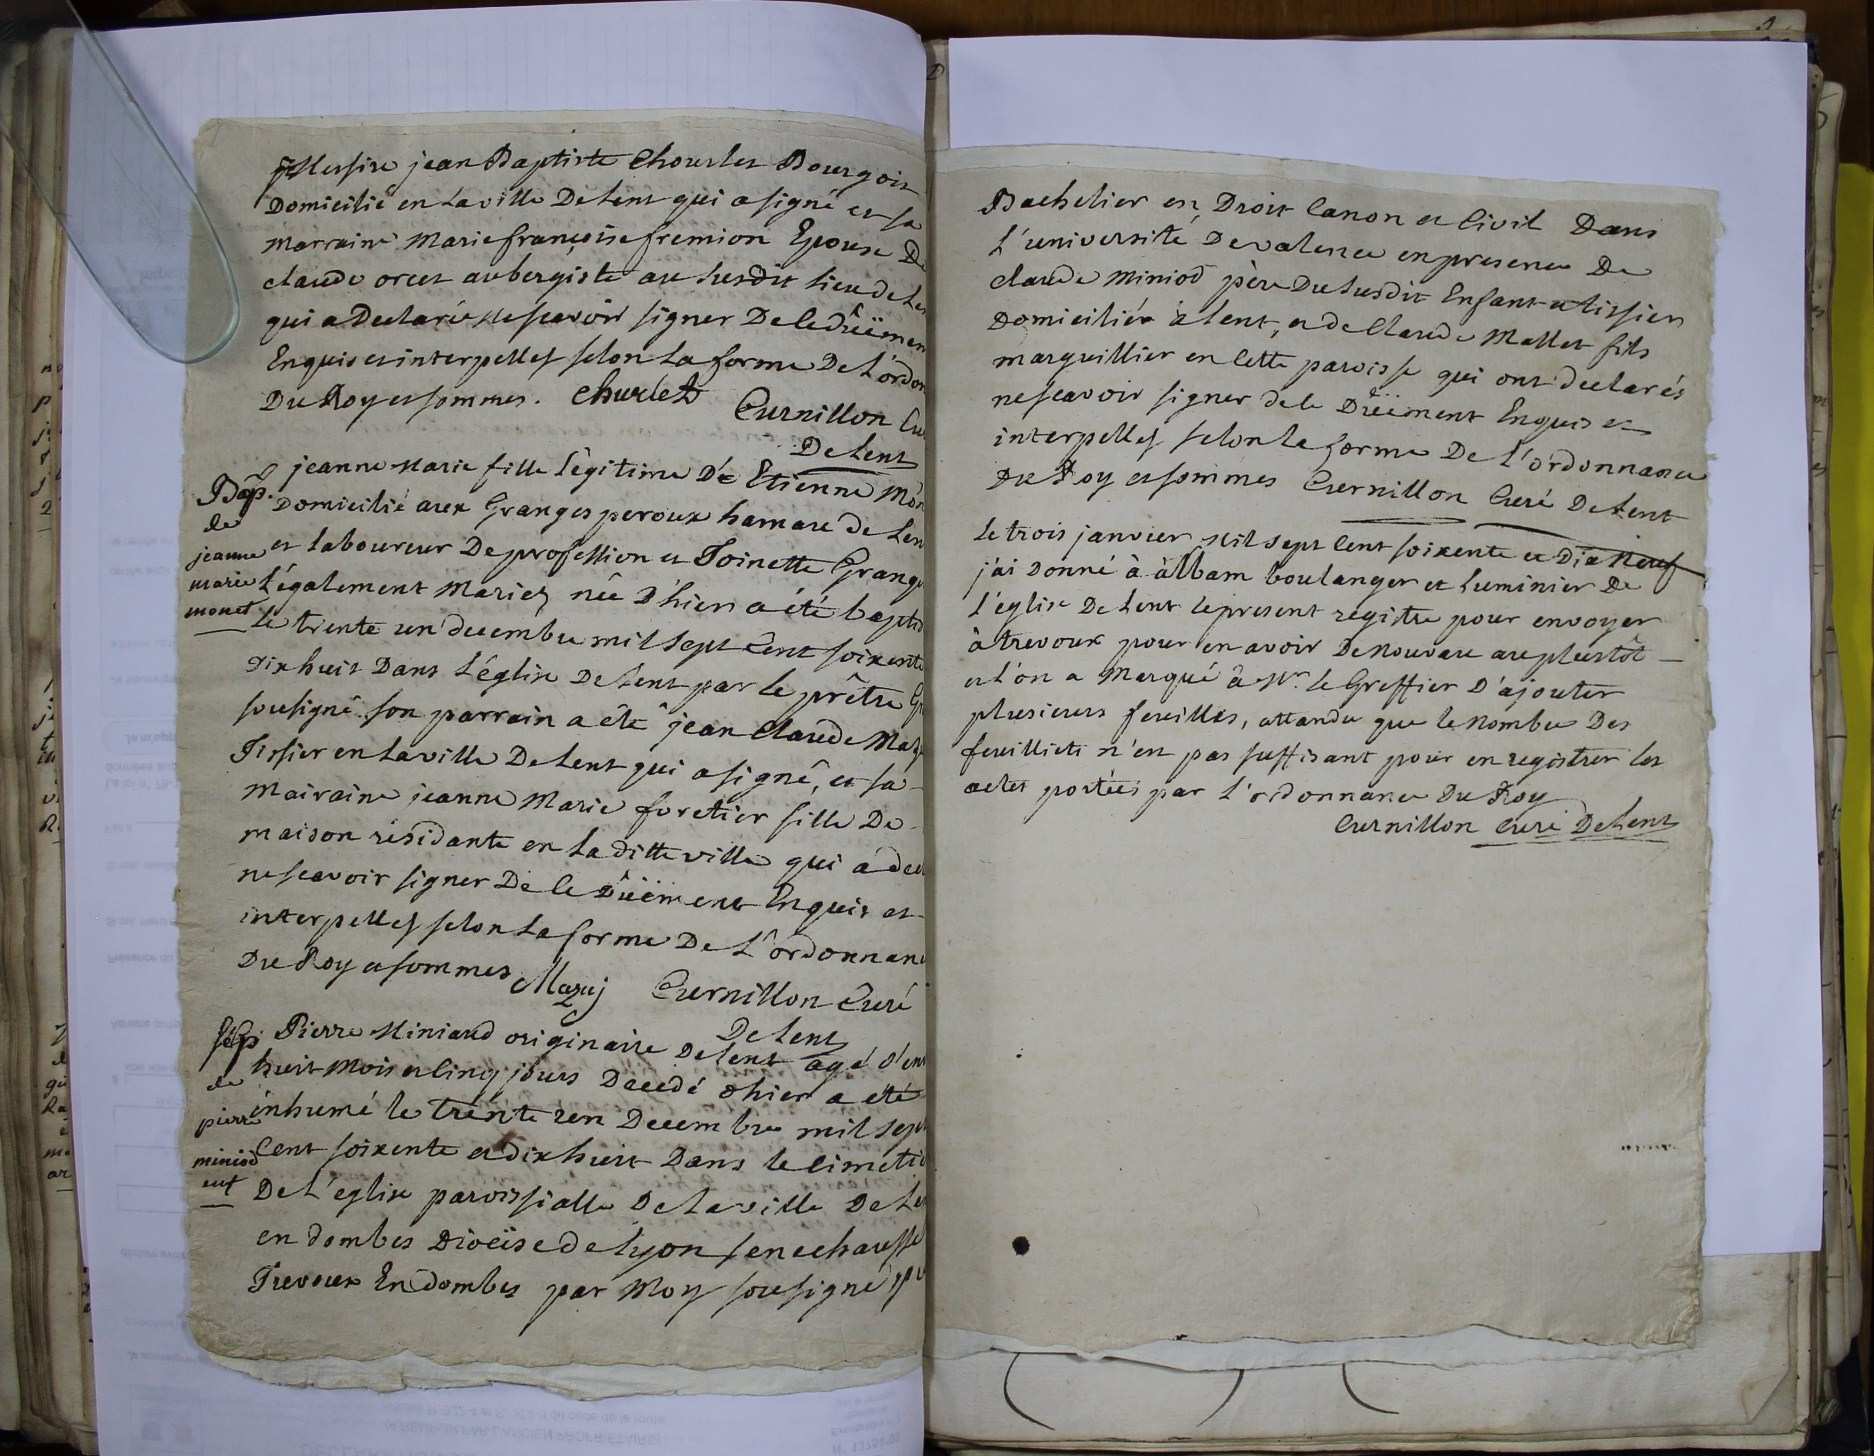 Messire jean Baptiste Chourlet Bourgois
Domicilié en la ville De Lent qui a signé et sa
marraine Marie françoise fremion Epouse De
claude orcet aubergiste au susdit lieu de Len
qui a Declaré ne scavoir signer De ce dûëmen
Enquis et interpelles selon la forme De L'ordon
Du Roy et sommes. Churlet
Curnillon Cu
De Lent
jeanne Marie fille légitime De Etienne Mon
Bap. Domicilié aux Granges peroux hamau de Len
de
jeanne et laboureur De profession et Toinette Grange
marie légalement Mariez née D'hier a été baptis
monet le trente un decembre mil sept cent soixente
dix huit Dans l'église De Lent par le prêtre
sousigné son parrain a été jean claude Maz
Tissier en la ville De Lent qui a signé, et sa
mairaine jeanne Marie foretier fille De
maison résidante en la ditte ville qui a dec
ne scavoir signer De ce Dûëment Enquis et
interpelles selon la forme De L'ordonnan
Du Roy et sommes Mazuj Curnillon Curé
De Lent
Sep Pierre Miniaud originaire De Lent agé d'un
de huit mois et cinq jours Decedé d'hier a été
pierre inhumé le trente un Decembre mil sept
miniod Cent soixente et dix huit Dans le cimetie
De L'eglise paroissialle De la ville De Le
en dombes Diocèse de Lyon senechaussé
Trevoux En dombes par Moy sousigné
Bachelier en Droit Canon et Civil Dans
l'université De valence en presence De
claude Miniod père Du susdit Enfant et tissier
Domicilié à Lent, et de Claude Mallet fils
marguillier en Cette paroisse qui ont declarés
ne scavoir signer de ce Dûëment Enquis et
interpelles selon la forme De l'ordonnance
Du Roy et sommes Curnillon Curé De Lent
le trois janvier Mil sept Cent soixente et Dix Neuf
j'ai Donné à àlbam boulanger et luminier De
l'église De Lent le present registre pour envoyer
à trevoux pour en avoir De nouveau au plustôt
et l'on a Marqué à Mr. le Greffier D'ajouter
plusieurs feuilles, attandu que le nombre Des
feuillets n'est pas suffisant pour en registrer les
actes portées par l'ordonnance Du Roy
Curnillon Curé De Lent